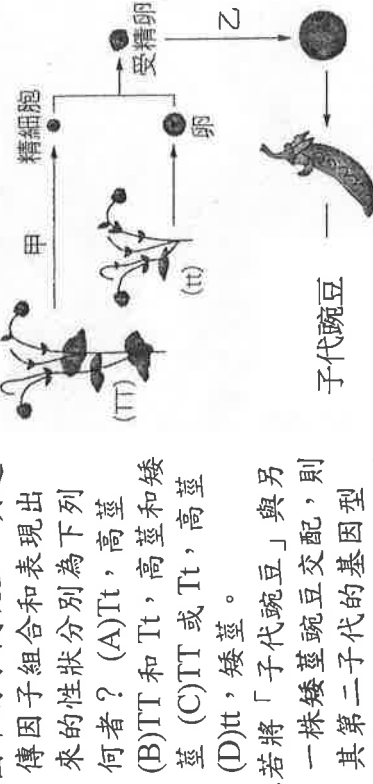 傳因子組合和表現出
來的性狀分別為下列
何者？ (A)Tt，高莖
(B)TT 和 Tt，高莖和矮
莖 (C)TT 或 Tt，高莖
(D)tt，矮莖。
若將「子代豌豆」與另
一株矮莖豌豆交配，則
其第二子代的基因型
(TT)
甲
精細胞
(tt)
卵
受精卵
乙
子代豌豆